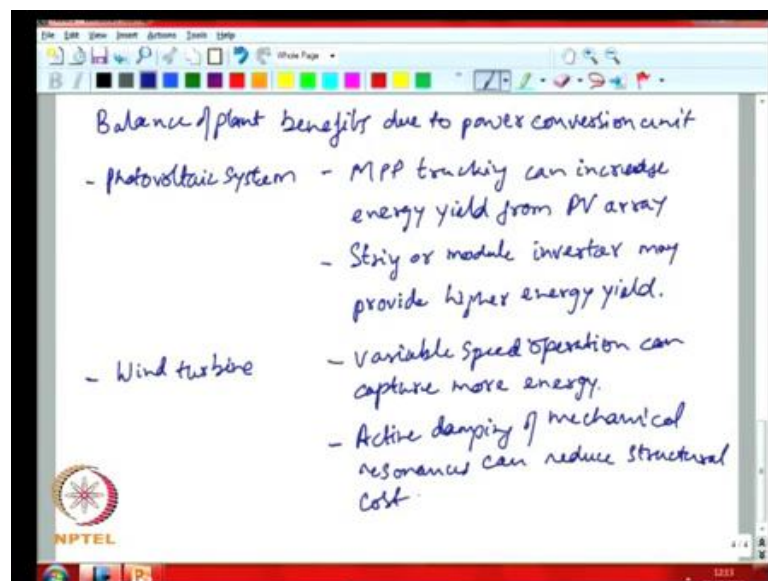 File Edit View Insert Actions Tools Help
Whole Page
B I
Balance of plant benefits due to power conversion unit
- Photovoltaic system - MPP tracking can increase
energy yield from PV array
- String or module inverter may
provide higher energy yield.
- Wind turbine - Variable speed operation can
capture more energy.
- Active damping of mechanical
resonances can reduce structural
cost.
NPTEL
4/4
12:13